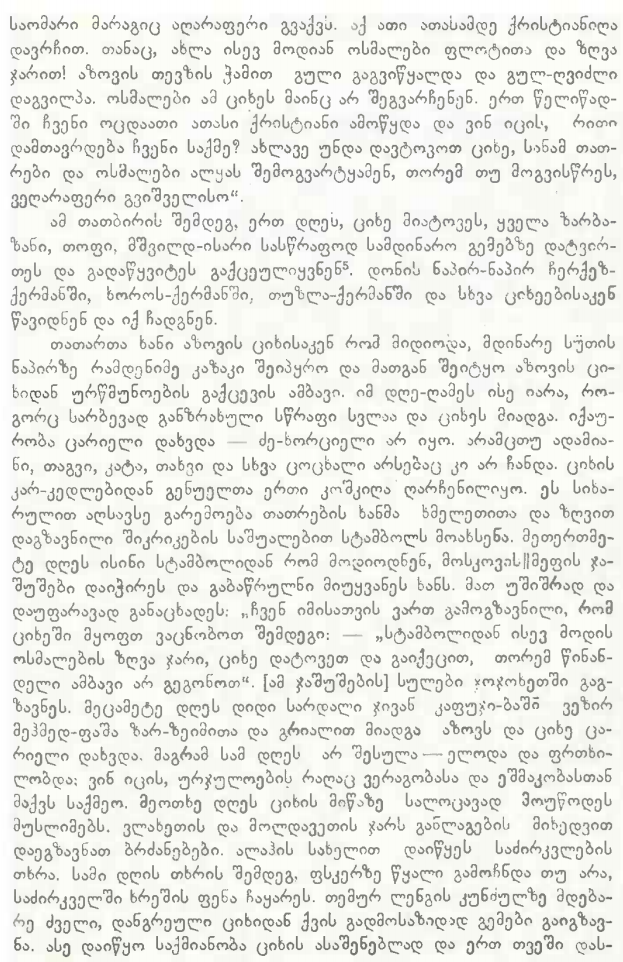 საომარი მარაგიც აღარაფერი გვაქვს. აქ ათი ათასამდე ქრისტიანიღა
დავრჩით. თანაც, ახლა ისევ მოდიან ოსმალები ფლოტითა და ზღვა
ჯარით! აზოვის თევზის ჭამით გული გაგვიწყალდა და გულ-ღვიძლი
დაგვილპა. ოსმალები ამ ციხეს მაინც არ შეგვარჩენენ. ერთ წელიწად-
ში ჩვენი ოცდაათი ათასი ქრისტიანი ამოწყდა და ვინ იცის, რითი
დამთავრდება ჩვენი საქმე? ახლავე უნდა დავტოვოთ ციხე, სანამ თათ-
რები და ოსმალები ალყას შემოგვარტყამენ, თორემ თუ მოგვისწრეს,
ვეღარაფერი გვიშველისო“.
ამ თათბირის შემდეგ, ერთ დღეს, ციხე მიატოვეს, ყველა ზარბა-
ზანი, თოფი, მშვილდ-ისარი სასწრაფოდ სამდინარო გემებზე დატვირ-
თეს და გადაწყვიტეს გაქცეულიყვნენ⁵. დონის ნაპირ-ნაპირ ჩერქეზ-
ქერმანში, ხოროს-ქერმანში, თუზლა-ქერმანში და სხვა ციხეებისაკენ
წავიდნენ და იქ ჩადგნენ.
თათართა ხანი აზოვის ციხისაკენ რომ მიდიოდა, მდინარე სუ̈თის
ნაპირზე რამდენიმე კაზაკი შეიპყრო და მათგან შეიტყო აზოვის ცი-
ხიდან ურწმუნოების გაქცევის ამბავი. იმ დღე-ღამეს ისე იარა, რო-
გორც სარბევად განზრახული სწრაფი სვლაა და ციხეს მიადგა. იქაუ-
რობა ცარიელი დახვდა — ძე-ხორციელი არ იყო. არამცთუ ადამია-
ნი, თაგვი, კატა, თახვი და სხვა ცოცხალი არსებაც კი არ ჩანდა. ციხის
კარ-კედლებიდან გენუელთა ერთი კოშკიღა დარჩენილიყო. ეს სიხა-
რულით აღსავსე გარემოება თათრების ხანმა ხმელეთითა და ზღვით
დაგზავნილი შიკრიკების საშუალებით სტამბოლს მოახსენა. მეთერთმე-
ტე დღეს ისინი სტამბოლიდან რომ მოდიოდნენ, მოსკოვის||მეფის ჯა-
შუშები დაიჭირეს და გაბაწრულნი მიუყვანეს ხანს. მათ უშიშრად და
დაუფარავად განაცხადეს: „ჩვენ იმისათვის ვართ გამოგზავნილი, რომ
ციხეში მყოფთ ვაცნობოთ შემდეგი: — „სტამბოლიდან ისევ მოდის
ოსმალების ზღვა ჯარი, ციხე დატოვეთ და გაიქეცით, თორემ წინან-
დელი ამბავი არ გეგონოთ“. [ამ ჯაშუშების] სულები ჯოჯოხეთში გაგ-
ზავნეს. მეცამეტე დღეს დიდი სარდალი ჯივან კაფუჯი-ბაში ვეზირ
მეჰმედ-ფაშა ზარ-ზეიმითა და გრიალით მიადგა აზოვს და ციხე ცა-
რიელი დახვდა. მაგრამ სამ დღეს არ შესულა — ელოდა და ფრთხი-
ლობდა: ვინ იცის, ურჯულოების რაღაც ვერაგობასა და ეშმაკობასთან
მაქვს საქმეო. მეოთხე დღეს ციხის მიწაზე სალოცავად მოუწოდეს
მუსლიმებს. ვლახეთის და მოლდავეთის ჯარს განლაგების მიხედვით
დაეგზავნათ ბრძანებები. ალაჰის სახელით დაიწყეს საძირკვლების
თხრა. სამი დღის თხრის შემდეგ, ფსკერზე წყალი გამოჩნდა თუ არა,
საძირკველში ხრეშის ფენა ჩაყარეს. თემურ ლენგის კუნძულზე მდება-
რე ძველი, დანგრეული ციხიდან ქვის გადმოსაზიდად გემები გაიგზავ-
ნა. ასე დაიწყო საქმიანობა ციხის ასაშენებლად და ერთ თვეში დას-